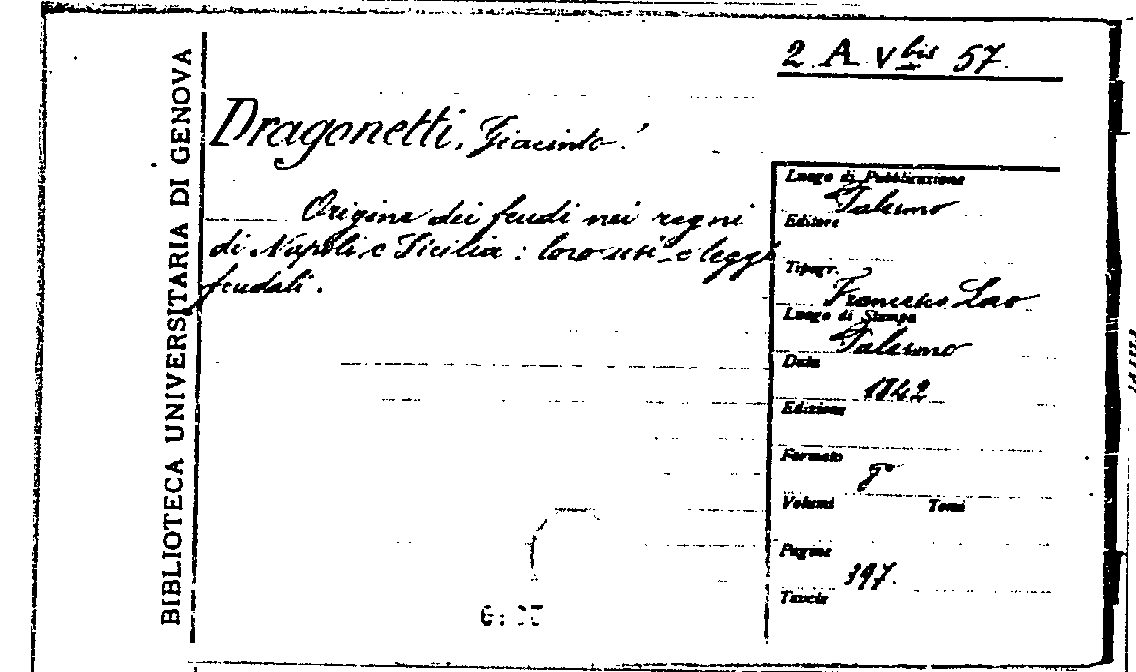 2 A V bis 57.
BIBLIOTECA UNIVERSITARIA DI GENOVA
Dragonetti, Giacinto.
Origine dei feudi nei regni
di Napoli e Sicilia: loro usi e leggi
feudali.
Luogo di Pubblicazione
Palermo
Editore
Tipogr.
Francesco Lao
Luogo di Stampa
Palermo
Data
1842
Edizione
Formato
8°
Volumi Tomi
Pagine
397.
Tavole